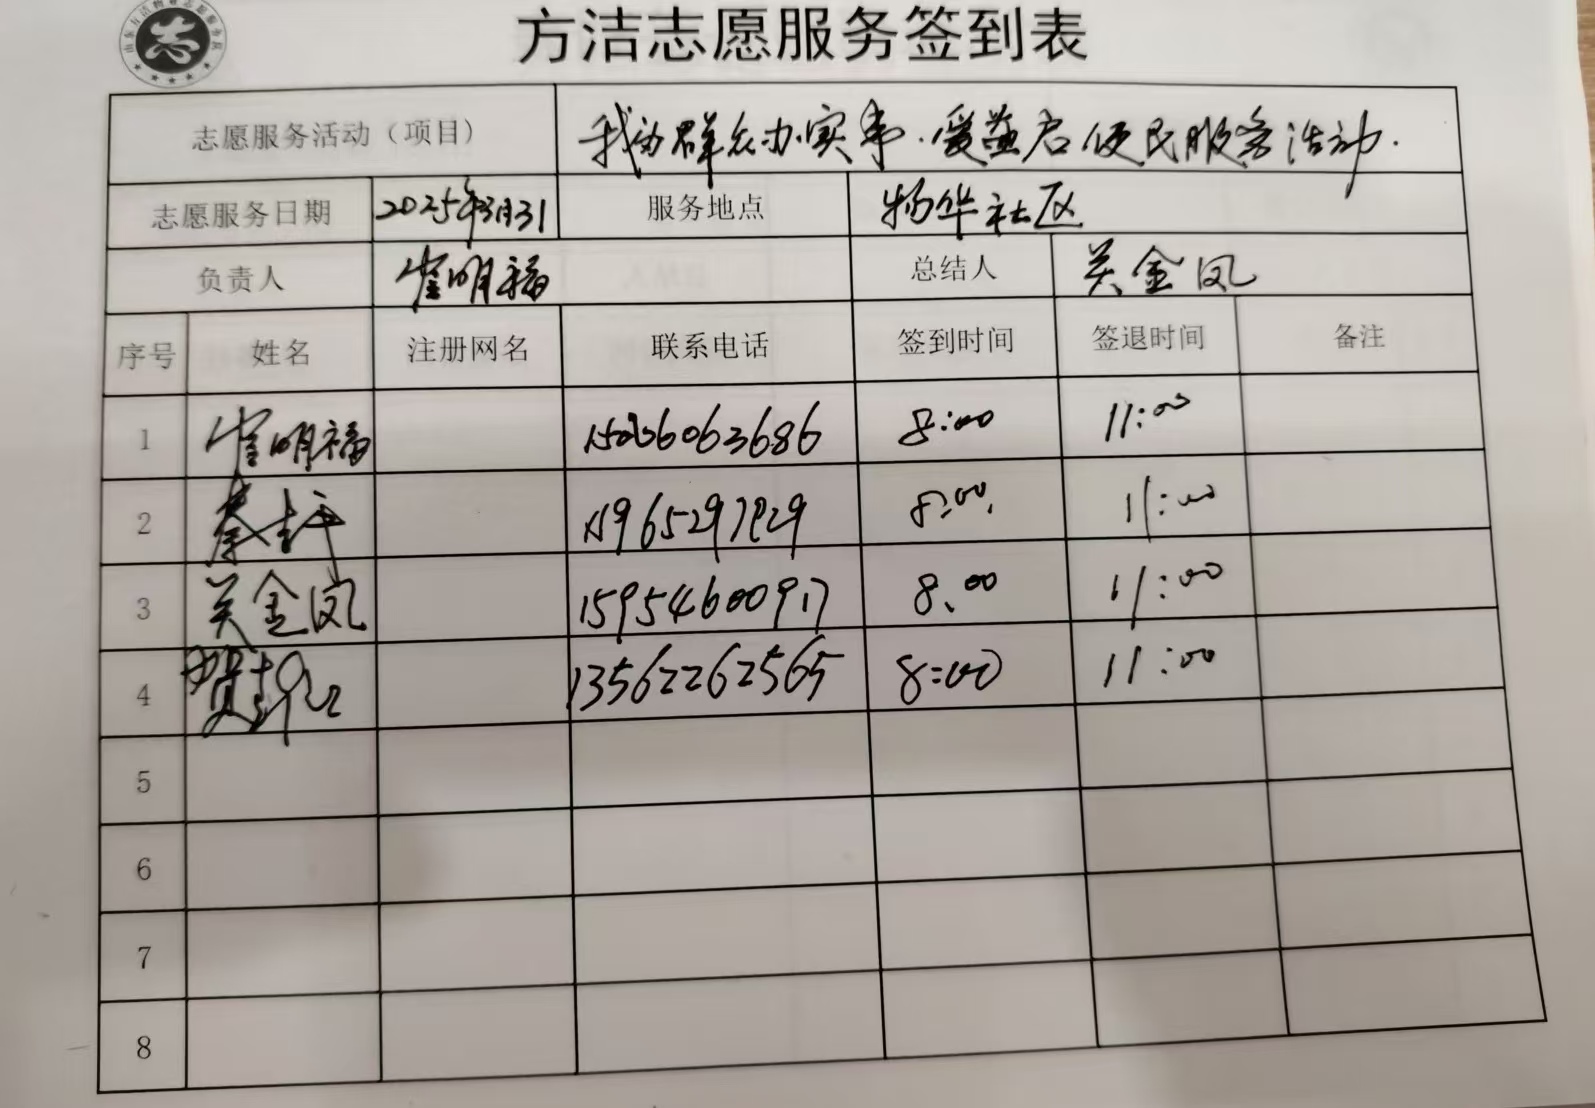 方洁志愿服务签到表
志愿服务活动（项目） 我为群众办实事.爱益启便民服务活动.
志愿服务日期 2025年3月31 服务地点 物华社区
负责人 崔明福 总结人 关金凤
序号 姓名 注册网名 联系电话 签到时间 签退时间 备注
1 崔明福 15066063686 8:00 11:00
2 8:00. 11:00
3 关金凤 15954600917 8.00 11:00
4 13562262565 8:00 11:00
5
6
7
8